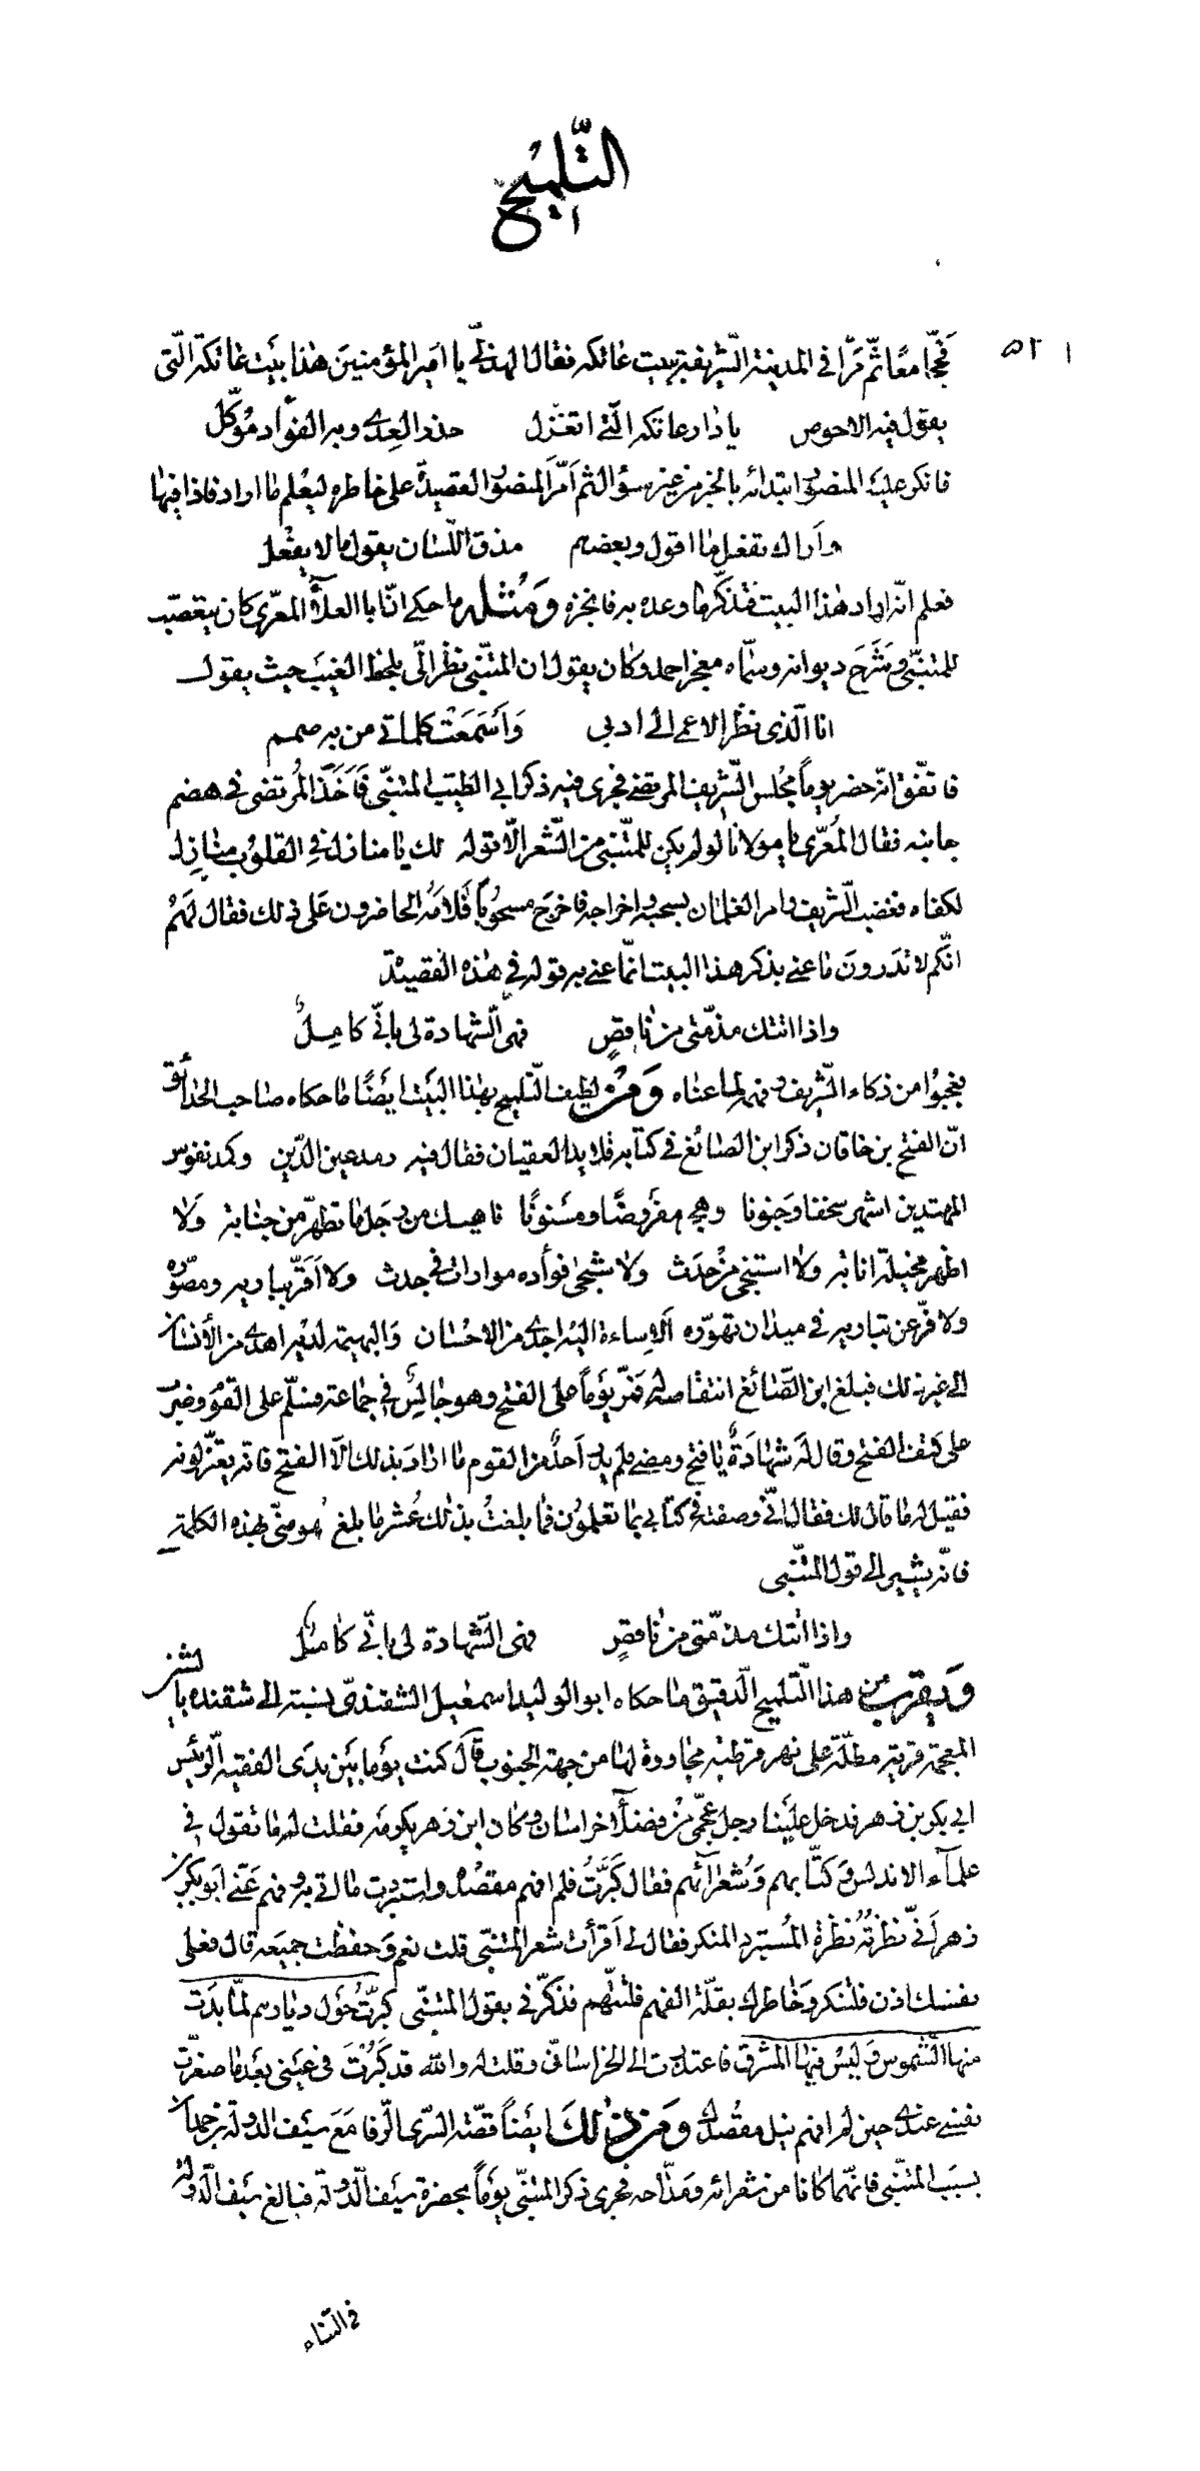 التلميح
٥٢١
فحجّا معًا ثمّ مرّا في المدينة الشريفة ببيت عاتكة فقال الهذلى يا امير المؤمنين هٰذا بيت عاتكة الّتى
يقول فيه الاحوص يا دار عاتكة الّتى اتغزّل حذر العدى وبه الفؤاد موكّل
فانكر عليه المنصور ابتدائه بالخبر من غير سؤال ثم امرّ المنصور القصيدة على خاطره ليعلم ما اراد فاذا فيها
واراك تفعل ما اقول وبعضهم مذق اللّسان يقول ما لا يفعل
فعلم انّه اراد هٰذا البيت فتذكّر ما وعده به فانجزه ومثله ما حكى انّ ابا العلآء المعرّى كان يتعصّب
للمتنبّى وشرح ديوانه وسمّاه معجز احمد وكان يقول ان المتنبّى نظر الىّ بلحظ الغيب حيث يقول
انا الّذى نظر الاعمى الى ادبى وَاَسمَعَتْ كلماتى من به صمم
فاتّفق انّه حضر يوماً مجلس الشّريف المرتضى فجرى فيه ذكر ابى الطّيّب المتنبّى فَاَخَذَ المُرتضى فى هضم
جانبه فقال المُعرّى يا مولانا لو لم يكن للمتنبّى من الشّعر الّا قوله لك يا منازل فى القلوب منازل
لكفاه فغضب الشّريف وامر الغلمان بسحبه واخراجه فاخرج مسحوبًا فلامه الحاضرون على ذلك فقال لهم
انّكم لا تدرون ما عنى بذكر هذا البيت انّما عنى به قوله فى هٰذه القصيدة
واذا اتتك مذمّتى من ناقصٍ فهى الشّهادة لى بانّى كاملُ
فعجبوا من ذكاء الشّريف وفهمه لما عناه ومن لطيف التّلميح بهٰذا البيت ايضًا ما حكاه صاحب الحدائق
انّ الفتح بن خاقان ذكر ابن الصائغ فى كتابه قلايد العقيان فقال فيه رمد عين الدّين وكمد نفوس
المهتدين اشتهر سخفا وجنونا وهجر مفروضًا ومسنونًا ناهيك من رجل ما تطهّر من جنابة ولا
اظهر مخيلة انابة ولا استنجى من حدث ولا شجى فؤاده موارات فى جدث ولا اقرّ بباريه ومصوّره
ولا فرّ عن تباريه فى ميدان تهوّره الاساءة اليه اجدى من الاحسان والبهيمة لديه اهدى من الأنسان
الى غير ذلك فبلغ ابن الصّائغ انتقاصه له فمرّ يوماً على الفتح وهو جالس فى جماعة فسلّم على القوم وضرب
على كتف الفتح وقال له شهادة يا فتح ومضى فلم يدر احدٌ من القوم ما اراد بذلك الّا الفتح فانه تغيّر لونه
فقيل له ما قال لك فقال انّى وصفته فى كتابى بما تعلمون فما بلغتُ بذلك عُشر ما بلغ هو منّى بهذه الكلمة
فانّه يشير الى قول المتنبّى
واذا اتتك مذمّتى من ناقصٍ فهى الشّهادة لى بانّى كاملُ
ويقرب من هذا التّلميح الدقيق ما حكاه ابو الوليد اسمعيل الشقندىّ نسبته الى شقنده بالشّين
المعجمة قرية مطلّة على نهر قرطبة مجاورة لها من جهة الجنوب قال كنت يوما بين يدى الفقيه الرّئيس
ابى بكر بن زهر فدخل علينا رجل عجمّى من فضلآء خراسان وكان ابن زهر يكرمه فقلت له ما تقول فى
علمآء الاندلس وكتّابهم وشعرائهم فقال كَبَّرتُ فلم افهم مقصده واستبردت ما اتى به وفهم عنّى ابو بكر بن
زهر انّى نظرته نظرة المُستبرد المنكر فقال لى اقرأت شعر المتنبّى قلت نعم وحفظت جميعه قال فعلى
نفسك اذن فلتنكر وخاطرك بقلّة الفهم فلتتّهم فذكّرنى بقول المتنبّى كبّرتُ حول ديارهم لمّا بدت
منها الشّموس وليس فيها المشرق فاعتذرت الى الخراسانى وقلت له والله قد كبُرْتَ فى عينى بعد ما صغرت
نفسى عندى حين لم افهم نبل مقصدك ومن ذلك ايضاً قصّة السّرى الرّفا مع سيف الدولة بن حمدان
بسبب المتنبّى فانّهما كانا من شعرائه ومدّاحه فجرى ذكر المتنبّى يوماً بحضرة سيف الدّولة فبالغ سيف الدّولة
فى الثناء